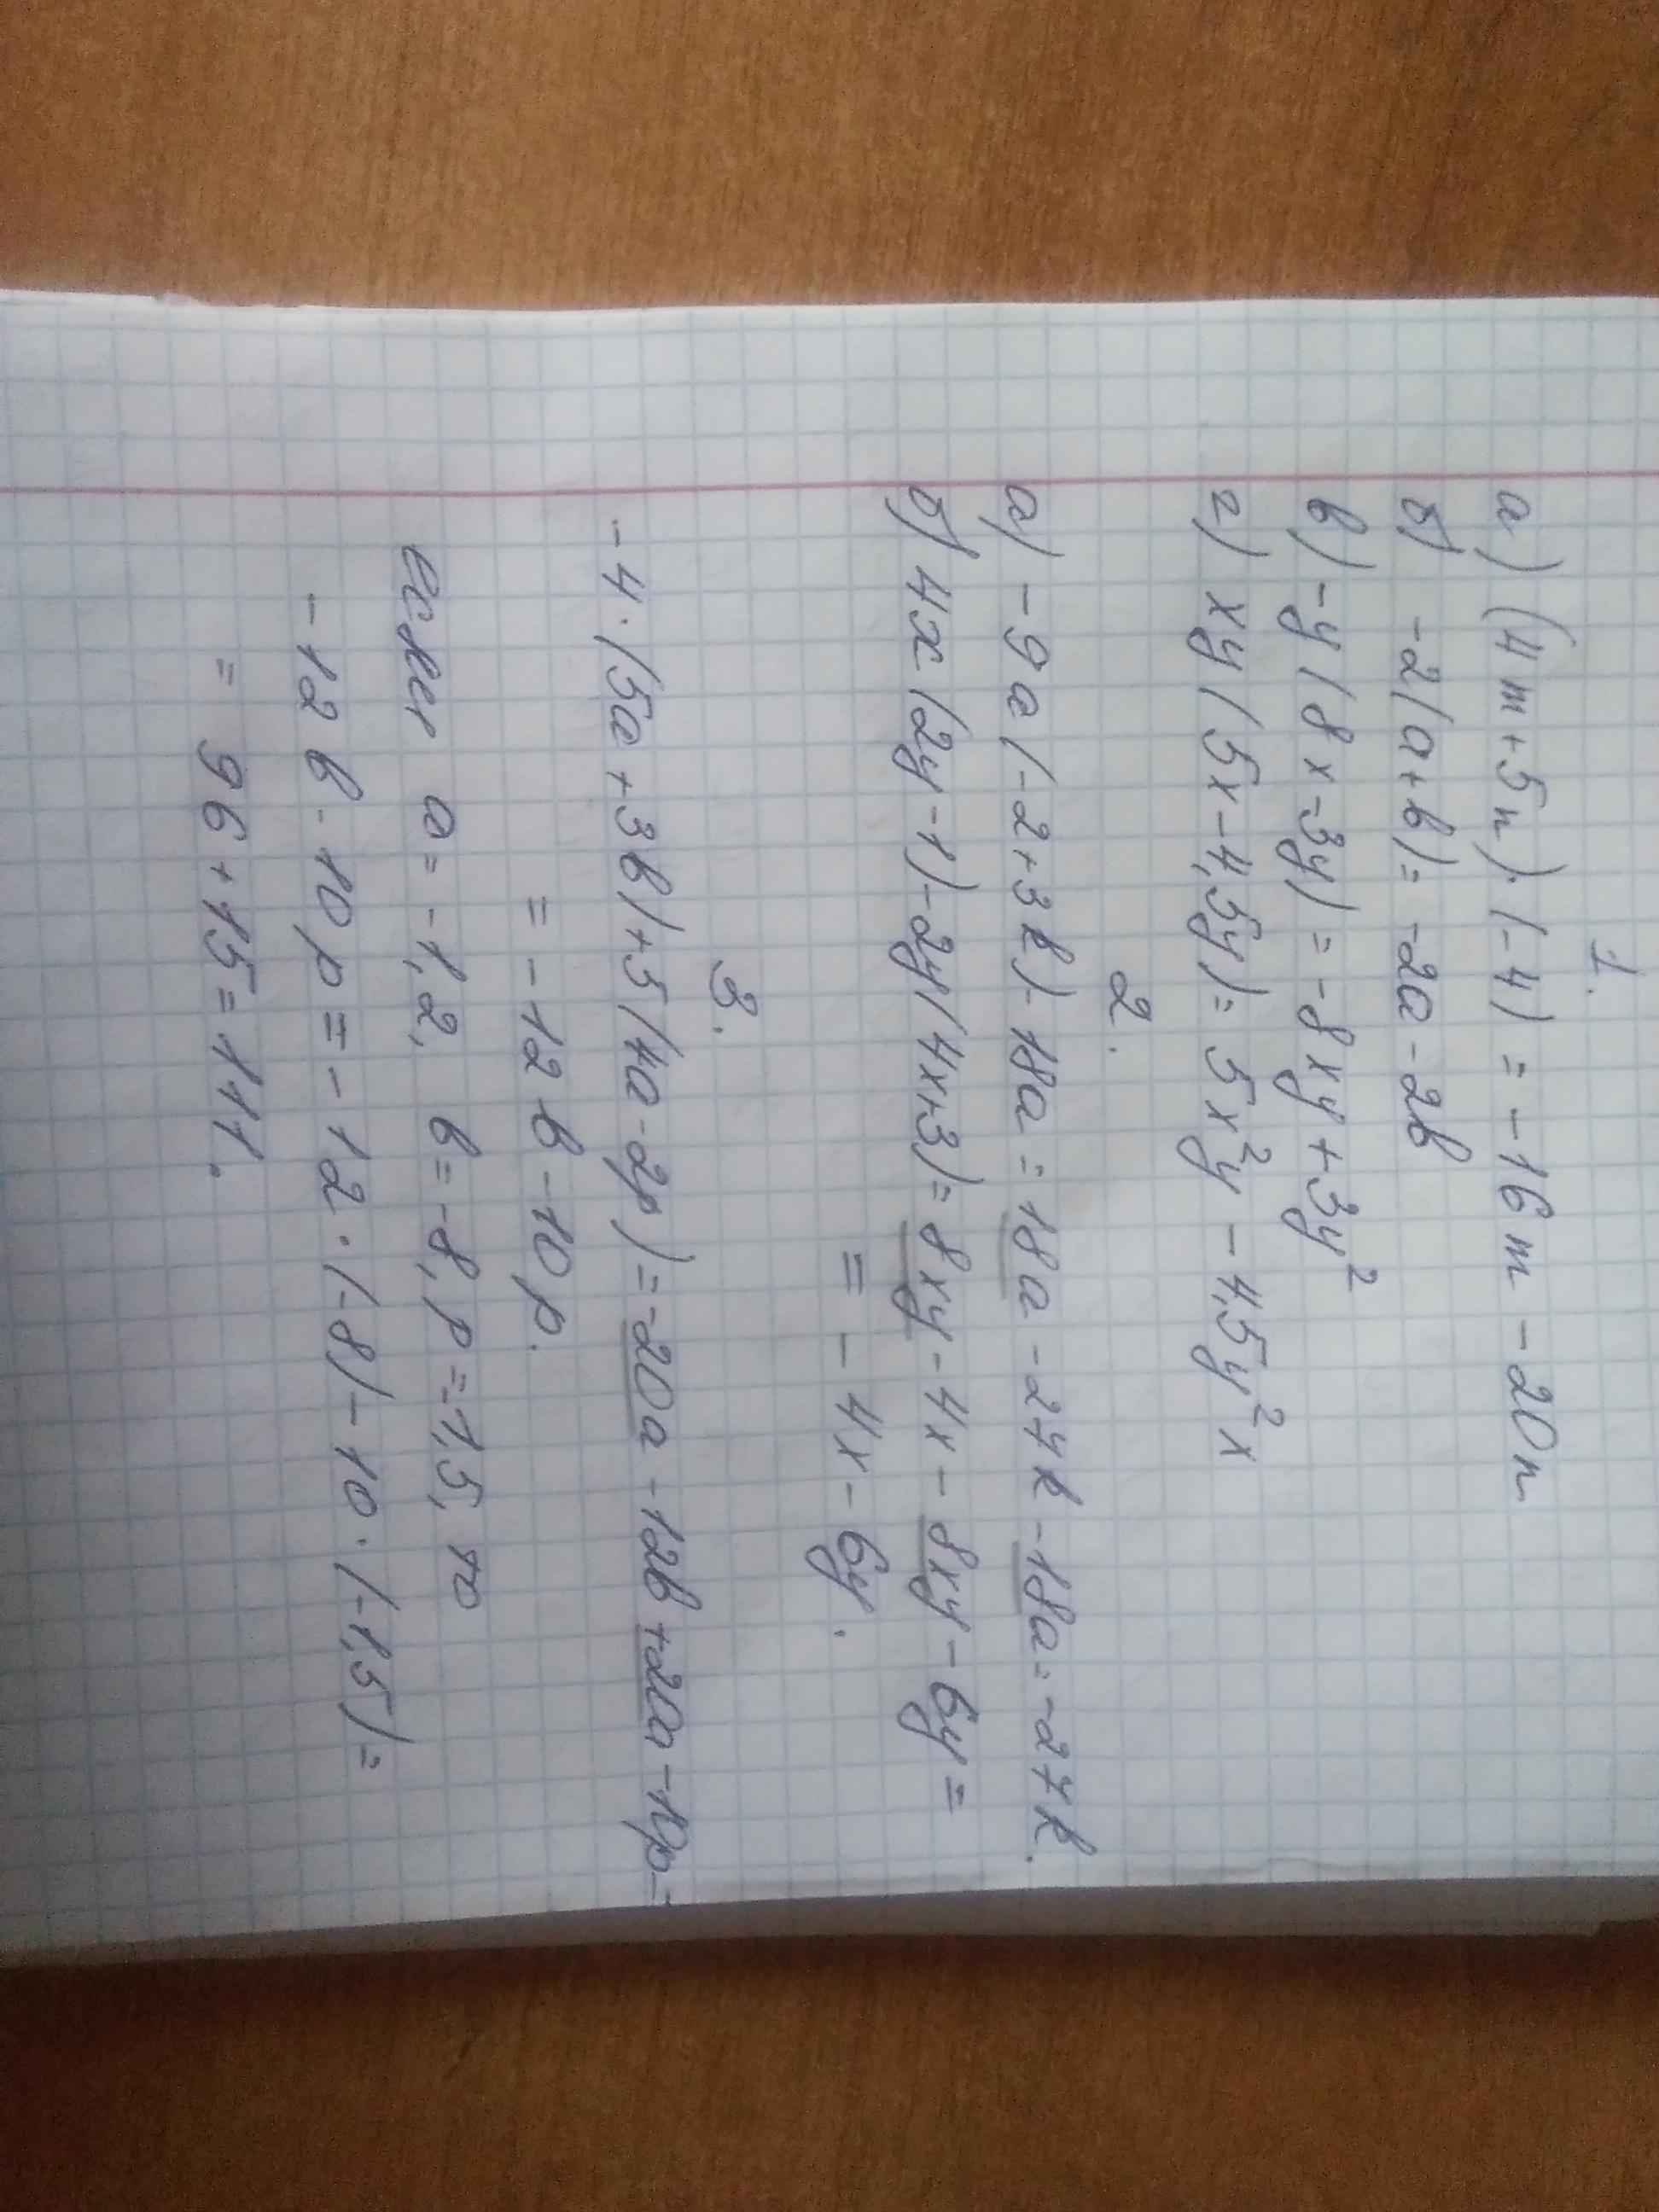 1.
а) (4m+5n)·(-4) = -16m -20n
б) -2(a+b)= -2a -2b
в) -y(8x-3y) = -8xy+3y²
г) xy(5x-4,5y)= 5x²y - 4,5y²x
2.
а) -9a(-2+3k)-18a = 18a -27k -18a= -27k.
б) 4x(2y-1)-2y(4x+3)= 8xy-4x-8xy-6y=
= -4x-6y.
3.
-4·(5a+3b)+5(4a-2p)=-20a-12b+20a-10p=
= -12b-10p.
если a=-1,2, b=-8, p=-1,5, то
-12b-10p=-12·(-8)-10·(-1,5)=
= 96+15=111.